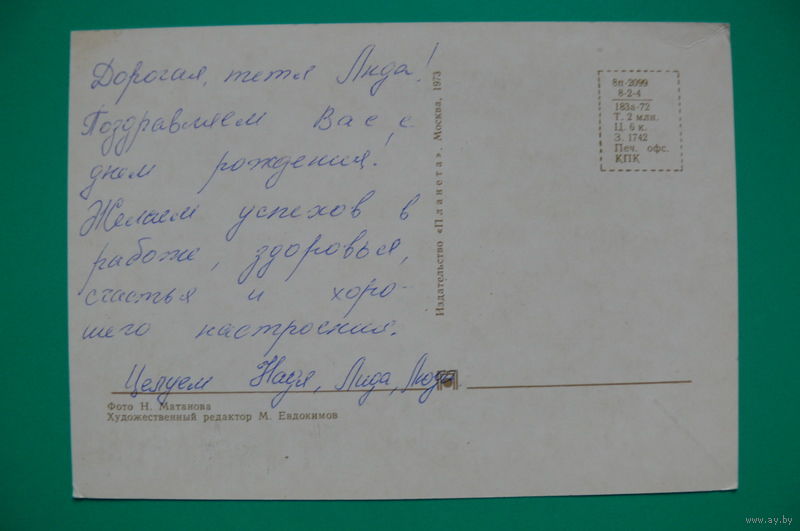 Дорогая, тетя Лида!
Поздравляем Вас с
днем рождения!
Желаем успехов в
работе, здоровья,
счастья и хоро-
шего настроения.
Целуем Надя, Лида, Люда
Фото Н. Матанова
Художественный редактор М. Евдокимов
Издательство «Планета». Москва, 1973
8п-2099
8-2-4
183а-72
Т. 2 млн.
Ц. 6 к.
З. 1742
Печ. офс.
КПК
www.ay.by